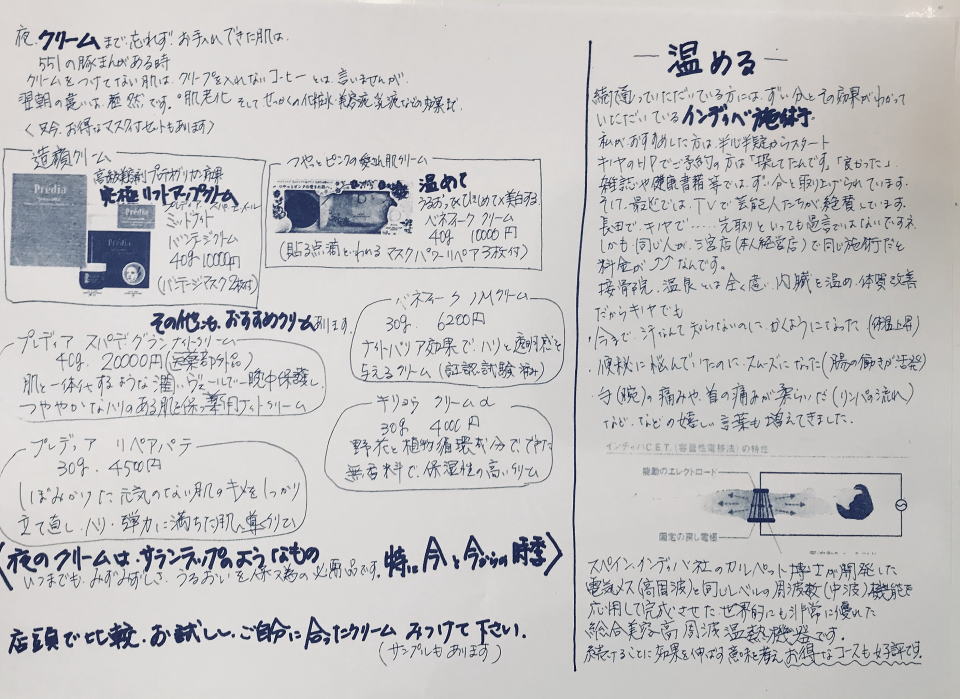 夜.クリームまで.忘れず.お手入れできた肌は.
551の豚まんがある時
クリームをつけてない肌は.クリープを入れないコーヒーとは.言いませんが.
翌朝の違いは.歴然です。肌老化 そして せっかくの化粧水.美容液.乳液などの効果まで.
〈只今.お得なマスク付セットもあります〉
造顔クリーム
究極リフトアップクリーム
Prédia
Prédia
プレディア スパ・エ・メール
ミッドフィト
バンテージクリーム
40g 10000円
(バンテージマスク2枚付)
つやっとピンクの愛され肌クリーム
温めて
うるおってひきしめて×美白する
ベネフィーク クリーム
40g 10000円
(貼る点滴といわれる マスクパワーリペア 3枚付)
その他にも.おすすめクリームあります.
プレディア スパデ グランナイトクリーム
40g. 20000円(医薬部外品)
肌と一体化するような濃いヴェールで一晩中保護し.
つややかなハリのある肌を保つ薬用ナイトクリーム
ベネフィーク NMクリーム
30g. 6200円
ナイトバリア効果で.ハリと透明感を
与えるクリーム(認認試験済み)
プレディア リペアパテ
30g. 4500円
しぼみがちな 元気のない肌のキメをしっかり
立て直し.ハリ・弾力に満ちた肌へ導くクリーム
キリョウ クリームα
30g 4000円
野花と植物循環成分でできた
無香料で.保湿性の高いクリーム
〈夜のクリームは.サランラップのようなもの
いつまでも.みずみずしさ.うるおいを保つ為の必需品です。特に今と今からの時季〉
店頭で比較.お試しし.ご自分に合ったクリーム みつけて下さい.
(サンプルもあります)
― 温める ―
続けて通っていただいている方には.ずい分とその効果がわかって
いただいている インディバ施術
私がおすすめした方は.半心半疑からスタート
キヤのHPでご予約の方は「探してたんです」「良かった」.
雑誌や健康書籍等では.ずい分と取り上げられています.
そして.最近では.TVで芸能人たちが絶賛しています.
長田で.キヤで……先取りといっても過言ではないですネ.
しかも.同じ人が.三宮店(本人経営店)で同じ施術だと
料金が↗↗なんです。
接骨院.温良とは全く違い.内臓を温め.体質改善
だから キヤでも
・今まで.汗なんて知らないのに.かくようになった(体温上昇)
・便秘に悩んでいたのに.スムーズになった(腸の働きが活発)
・手(腕)の痛みや.首の痛みが柔らいだ(リンパの流れ)
など.などの嬉しい言葉も増えてきました.
インディバC.E.T.(容量性電移法)の特性
能動のエレクトロード
固定の戻し電極
スペイン.インディバ社のカルベット博士が開発した
電気メス(高周波)と同じレベルの周波数(中波)機能を
応用して完成させた世界的にも非常に優れた
総合美容高周波温熱機器です.
続けることに効果を伸ばす意味を考え お得なコースも好評です.